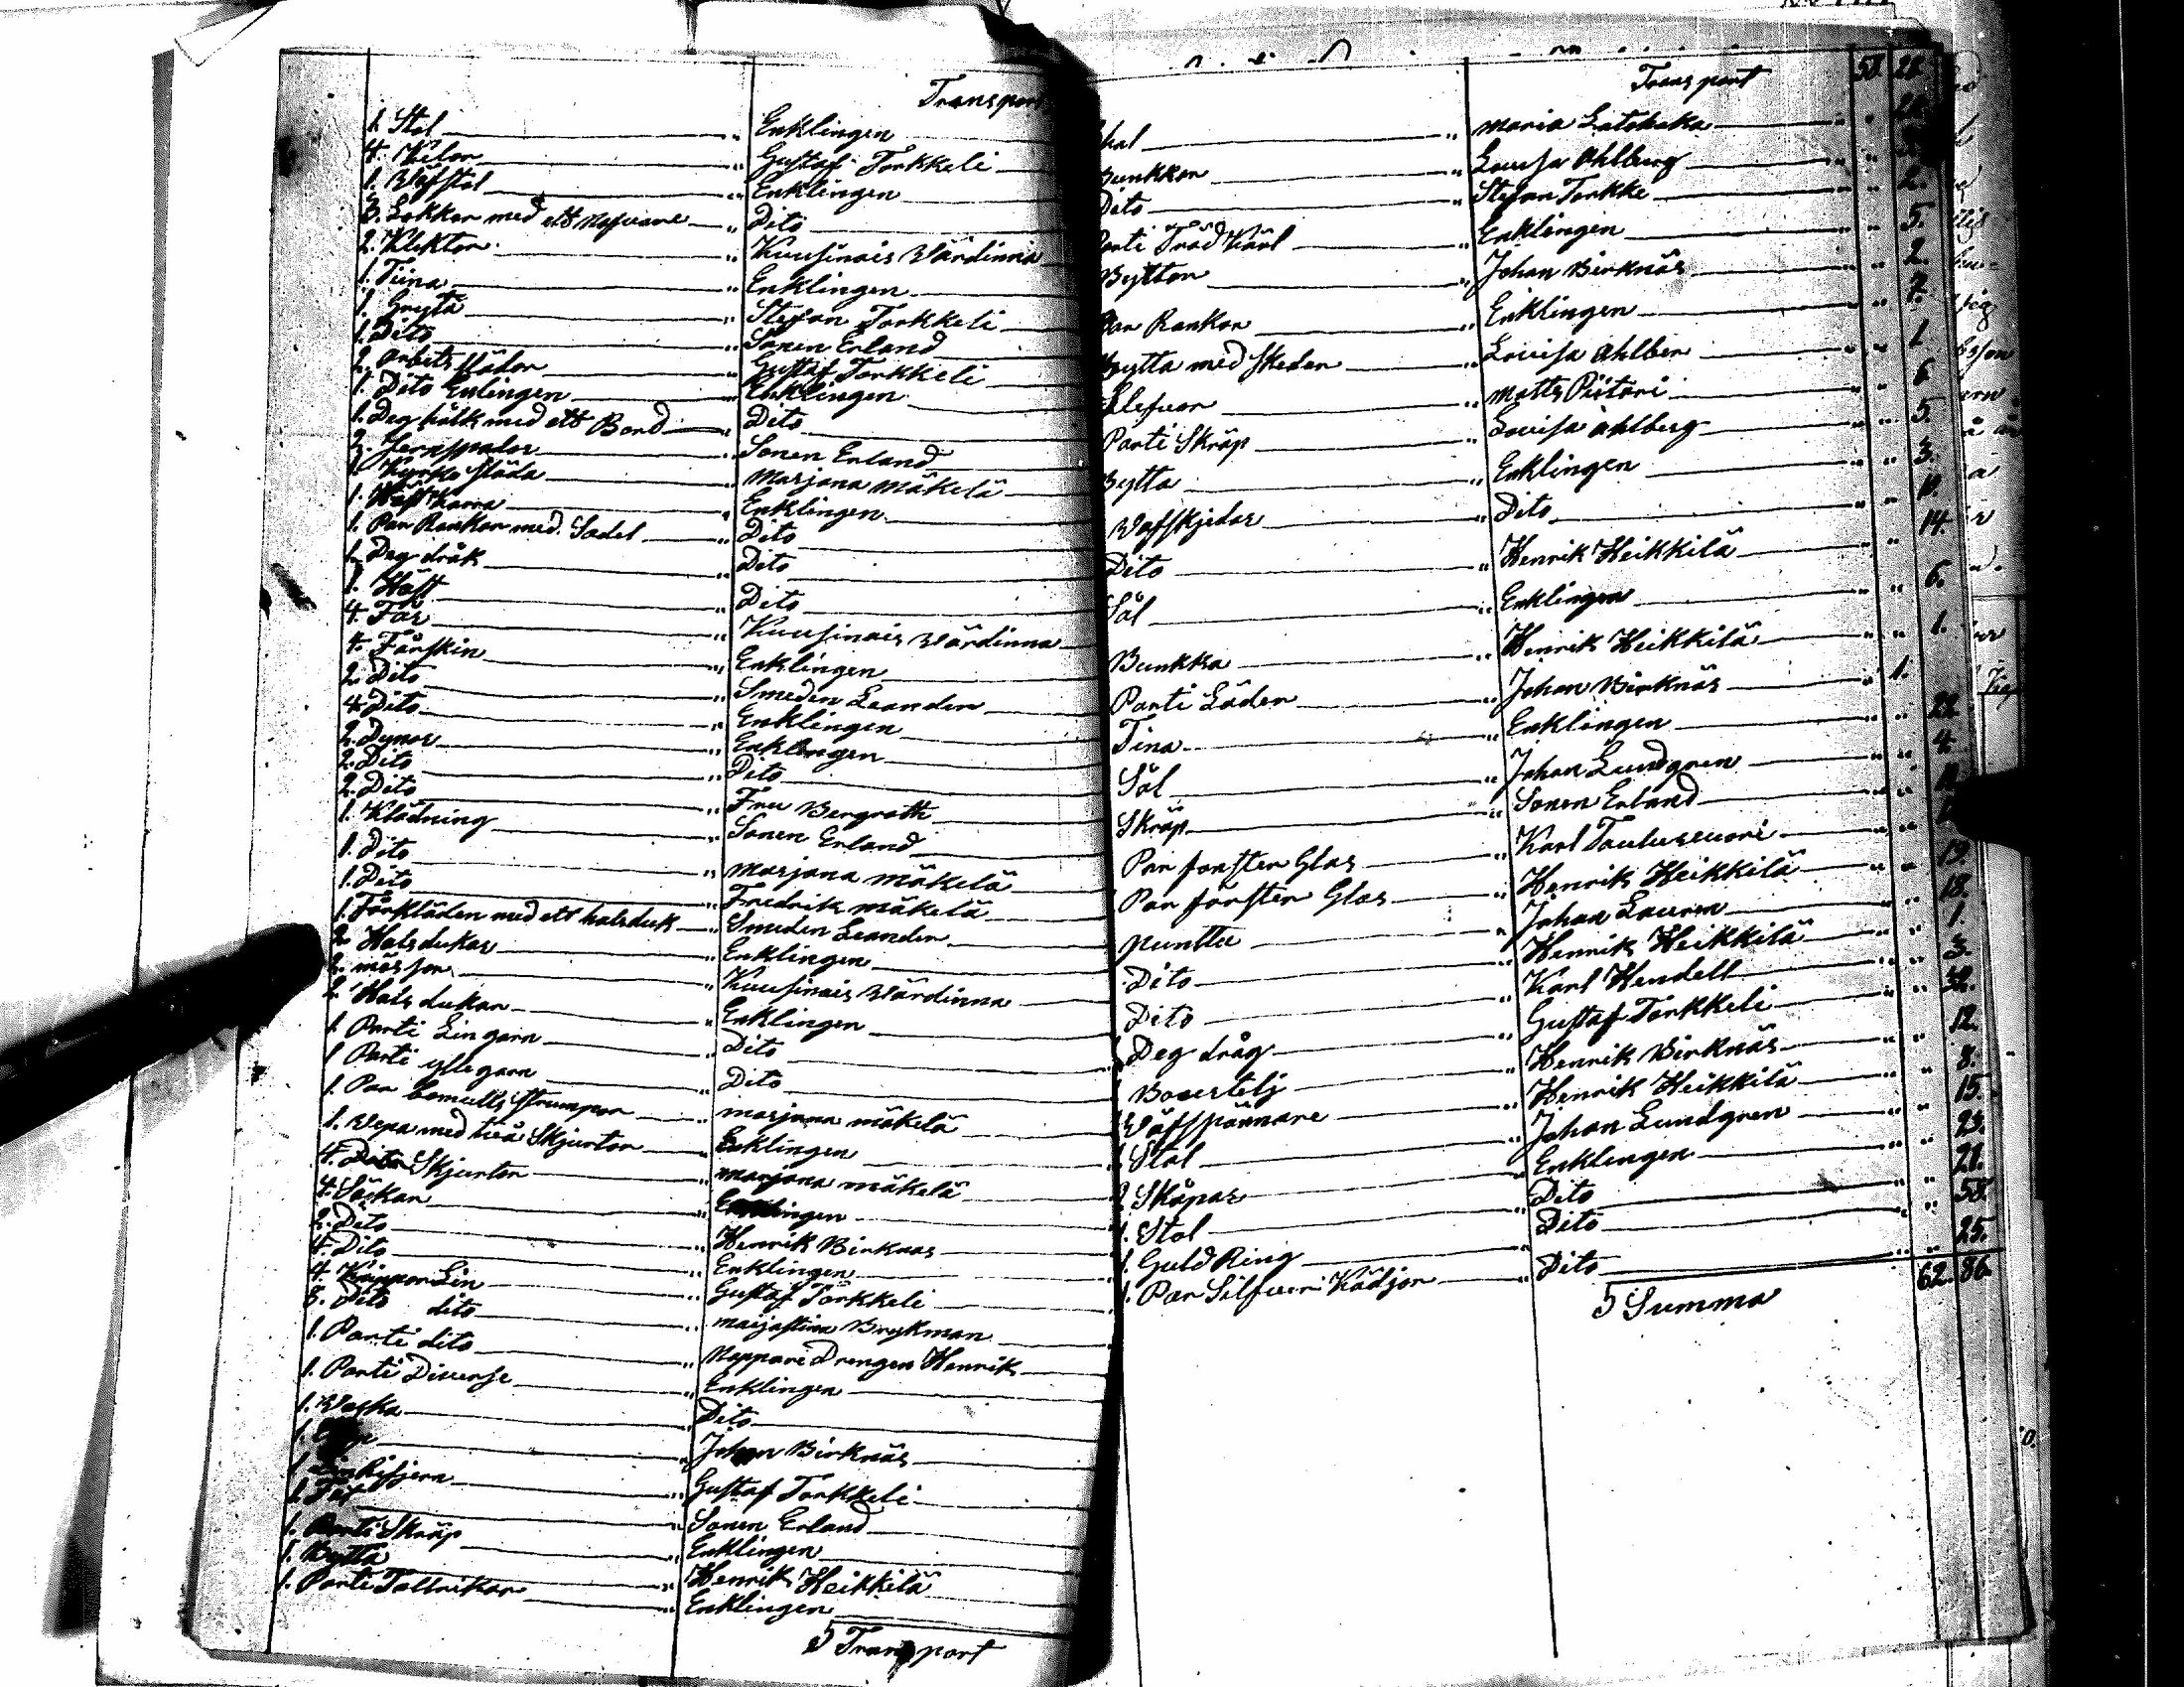 Transport
1. Stol " Enklingen
4. Kilor " Gustaf Torkkeli
1. Wäfstol " Enklingen
3. Lokkar med ett " Dito
2. Klektor " Kuusinais Wärdinna
1. Tiina " Enklingen
1. Gryta " Stefan Torkkeli
1. Dito " Sonen Erland
2. arbits slädor " Gustaf Torkkeli
1. Dito Enlingen " Enklingen
1. Deg hålk med ett Bord " Dito
3. Jernspador " Sonen Erland
1. Kyrko släda " Marjana mäkelä
1. Häst Karra " Enklingen
1. Par Rankor med Sadel " Dito
1. Deg dråk " Dito
1. Häst " Dito
4. Får " Kuusinais Wärdinna
4. Fårskin " Enklingen
2. Dito " Smeden Leander
4. Dito " Enklingen
2. Dynor " Enklingen
2. Dito " Dito
2. Dito " Fru Bergroth
1. Klädning " Sonen Erland
1. Dito " marjana mäkelä
1. Dito Fredrik mäkelä
1. Förkläden med ett halsduk Smeden Leander
2. Halsdukar " Enklingen
2. mössor " Kuusinais Wärdinna
2. Hals dukar " Enklingen
1. Parti Lin garn " Dito
1 Parti ylle garn " Dito
1. Par bomulls strumpor " marjana mäkelä
1. Wepa med två Skjortor " Enklingen
4. Skjortor " marjana mäkelä
4. Säckar " Enklingen
2. Dito " Henrik Birknäs
4. Dito " Enklingen
4. Lin " Gustaf Torkkeli
3. Dito dito " maijastina Brykman
1. Parti dito " Drengen Henrik
1. Parti Diverse " Enklingen
1. Waska " Dito
1. " Johan Birknäs
1 " Gustaf Torkkeli
1. " Sonen Erland
1. Parti Skräp " Enklingen
1. Bytta " Henrik Heikkilä
1. Parti Tallrikar " Enklingen
5 Transport
Transport 58. 28.
" maria Latokaka
Bunkkor " Lovisa Ahlberg
Dito " Stefan Torkke 2.
Parti Träd Kärl " Enklingen 5.
Byttor " Johan Birknäs 2.
Par Rankor " Enklingen 7.
Bytta med Skeder " Lovisa Ahlber 1
" matts Piitari 6
Parti Skräp " Lovisa Ahlberg 5.
Bytta " Enklingen 3.
Wäfskjedar " Dito
Dito " Henrik Heikkilä 14.
Sål " Enklingen 6.
Bunkka " Henrik Heikkilä 1.
Parti Läder " Johan Birknäs 1.
Tina " Enklingen
Sål " Johan Lundgren 4
Skräp " Sonen Erland
Par fönster Glas " Karl
Par fönster Glas " Henrik Heikkilä 19.
puntta " Johan Lauren 18.
Dito " Henrik Heikkilä 1.
Dito " Karl Hendell 3.
Deg dråg " Gustaf Torkkeli
" Henrik Birknäs 12.
Wäfspännare " Henrik Heikkilä 8.
1 Stol " Johan Lundgren 15.
2 Skåpar " Enklingen 23.
1. Stol " Dito 21.
1. Guld Ring " Dito 58.
1. Par Silfver Kädjor " Dito 25.
5 Summa 62. 86.